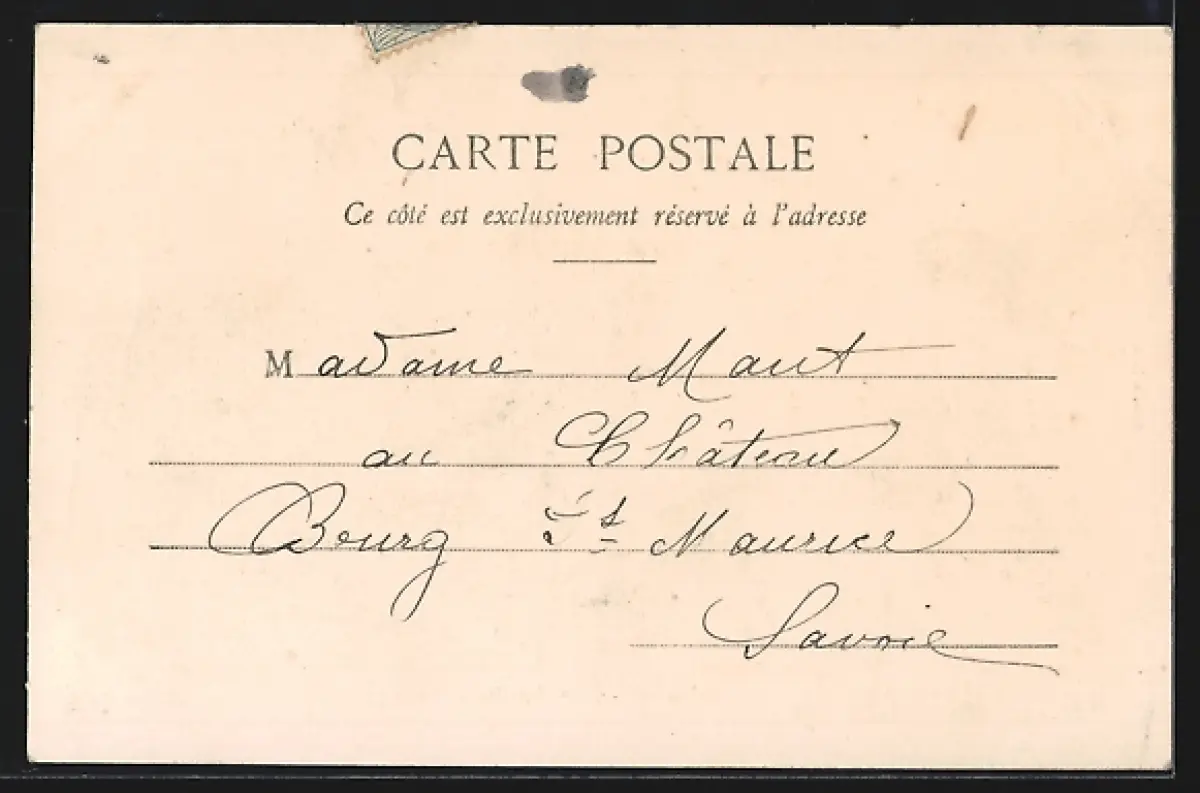 CARTE POSTALE
Ce côté est exclusivement réservé à l'adresse
Madame Maut
au Château
Bourg St Maurice
Savoie